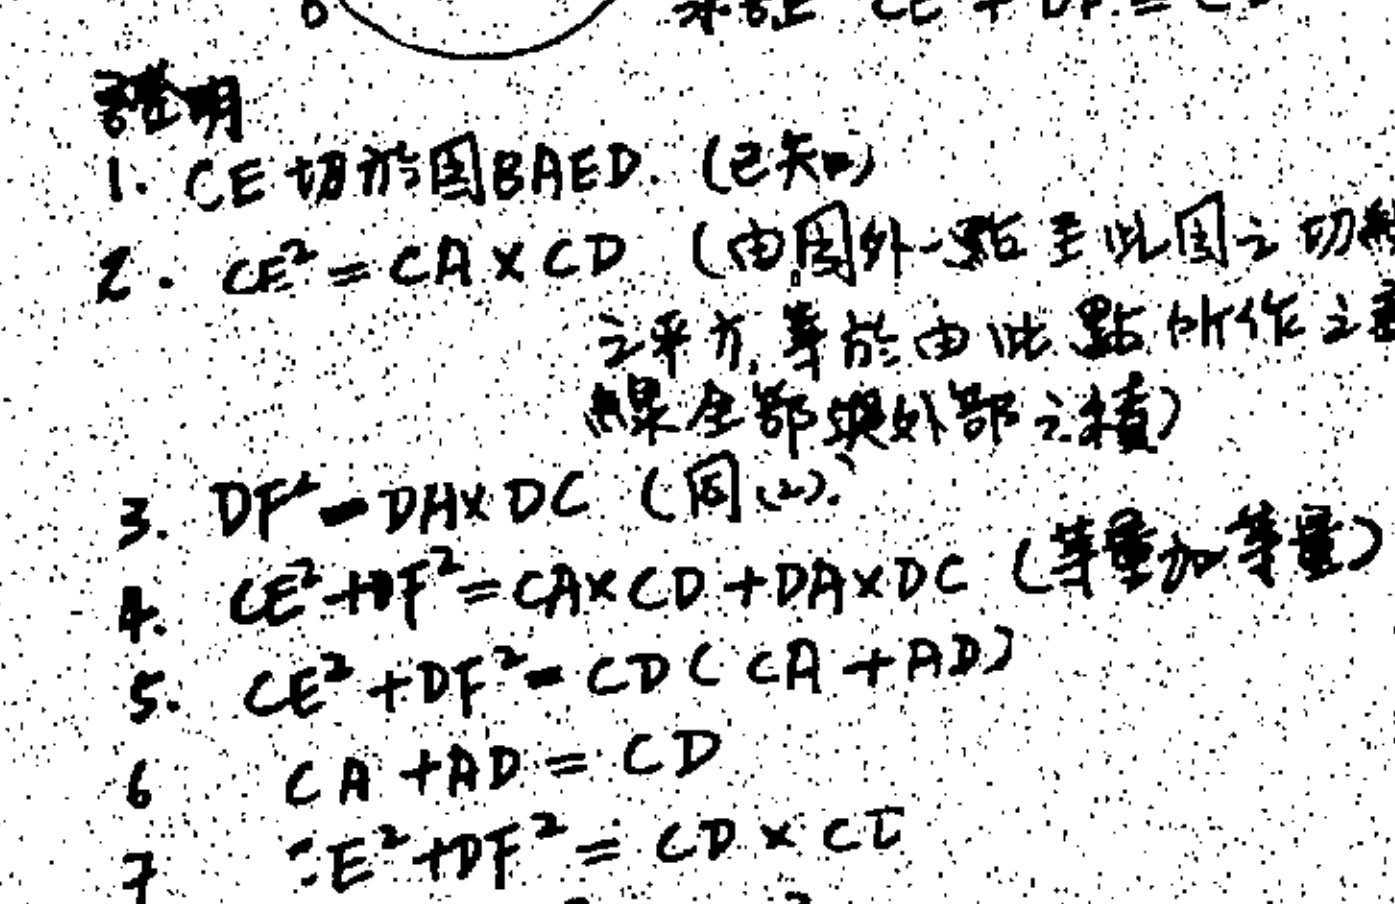 求証 CE² + DF² = C
證明
1. CE 切於圓BAED. (已知)
2. CE² = CA × CD (由圓外一點至此圓之切線
之平方, 等於由此點所作之
線全部與外部之積)
3. DF² = DA × DC (同(2).
4. CE² + DF² = CA × CD + DA × DC (等量加等量)
5. CE² + DF² = CD ( CA + AD )
6 CA + AD = CD
7 CE² + DF² = CD × CD